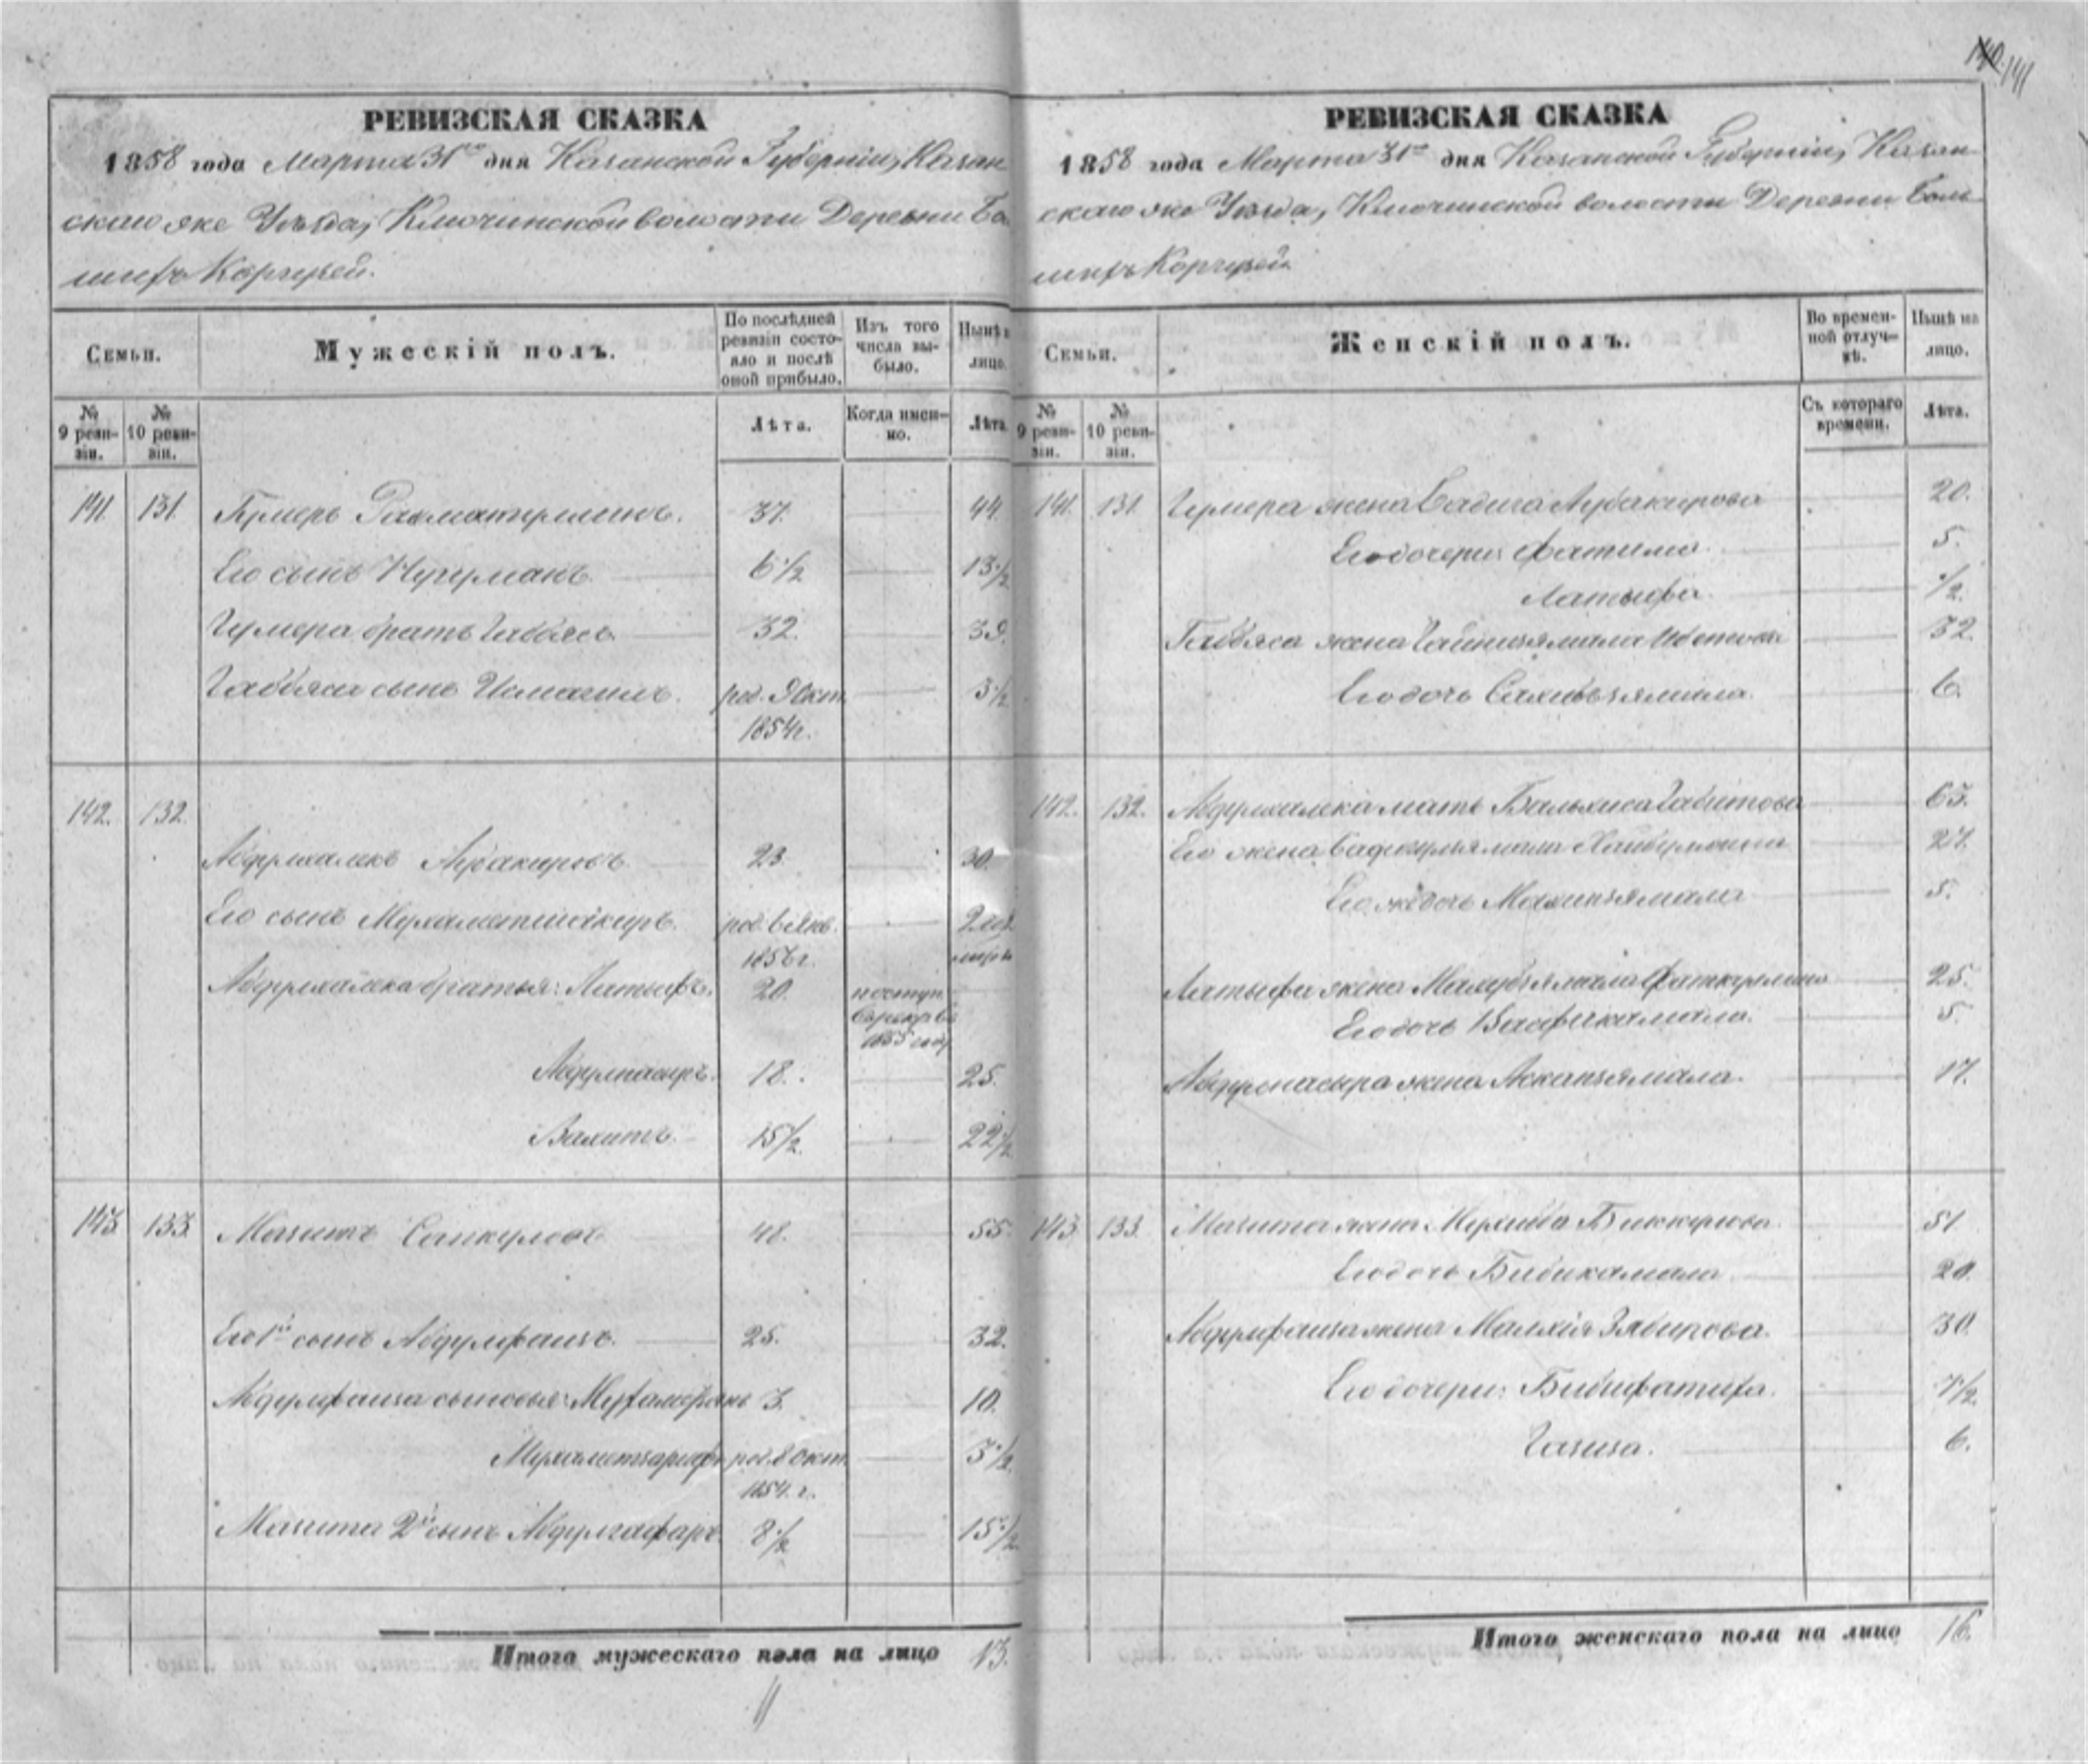 140. 141
РЕВИЗСКАЯ СКАЗКА
1858 года Марта 31го дня Казанской Губерніи, Казан
скаго же Уѣзда, Ключинской волости Деревни Бо
шихъ Коргузей.
Семьи.
Мужескій полъ.
По послѣдней ревизіи состо-
яло и послѣ оной прибыло.
Изъ того числа вы-
было.
Нынѣ на лицо.
№ 9 реви-
зіи.
№ 10 реви-
зіи.
Лѣта.
Когда имен-
но.
Лѣта.
141. 131. Гумеръ Рахматуллинъ. 37. 44.
Его сынъ Нугуманъ 6 1/2 13 1/2
Гумера братъ Габбясъ 32. 39.
Габбяса сынъ Исмагилъ. род. 9 Окт. 3 1/2
1854 г.
142. 132.
Абдулхаликъ Аубакировъ 23. 30.
Его сынъ Мухаметшакиръ. род. 6 Янв.
1856 г.
Абдулхалика братья: Латыфъ. 20. поступ.
1855 году
Абдулнасыръ. 18. 25.
Вахитъ. 15 1/2 22 1/2
143 133. Мазитъ 48. 55.
Его 1й сынъ Абдулфаизъ. 25. 32.
Абдулфаиза сыновья: 3. 10.
Мухаметзарифъ род. 8 Окт. 3 1/2
1854 г.
Мазита 2й сынъ Абдулгафаръ. 8 1/2 15 1/2
Итого мужескаго пола на лицо 13.
РЕВИЗСКАЯ СКАЗКА
1858 года Марта 31го дня Казанской Губерніи, Казан
скаго же Уѣзда, Ключинской волости Деревни Боль
шихъ Коргузей
Семьи.
Женскій полъ.
Во времен-
ной отлуч-
кѣ.
Нынѣ на лицо.
№ 9 реви-
зіи.
№ 10 реви-
зіи.
Съ котораго времени.
Лѣта.
141. 131. Гумера жена Садига Аубакирова 20.
Его дочери: Фатима. 5.
Латыфа. 1/2
Габбяса жена 32.
Его дочь Сахибзямала. 6.
142. 132. Абдулхалика мать Бальхиса Габитова 65.
Его жена 24.
Его же дочь 5.
Латыфа жена Махубзямала Фаткуллина 25.
Его дочь 5.
Абдулнасыра жена 17.
143 133. Мазита жена: Биккулова 51
Его дочь Бибикамала 20.
Абдулфаиза жена Зябирова. 30
Его дочери: Бибифатифа. 7 1/2
Газиза. 6.
Итого женскаго пола на лицо 16.